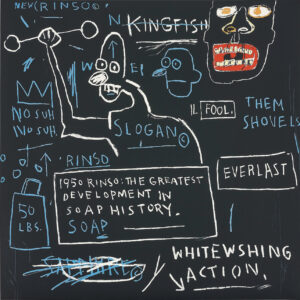 NEW(RINSO©
N
KINGFISH
W E
NO SUH
NO SUH
SLOGAN©
FOOL.
THEM
SHOVELS
·RINSO
1950 RINSO: THE GREATEST
DEVELOPMENT IN
SOAP HISTORY.
SOAP
EVERLAST
50
LBS.
WHITEWSHING
ACTION.